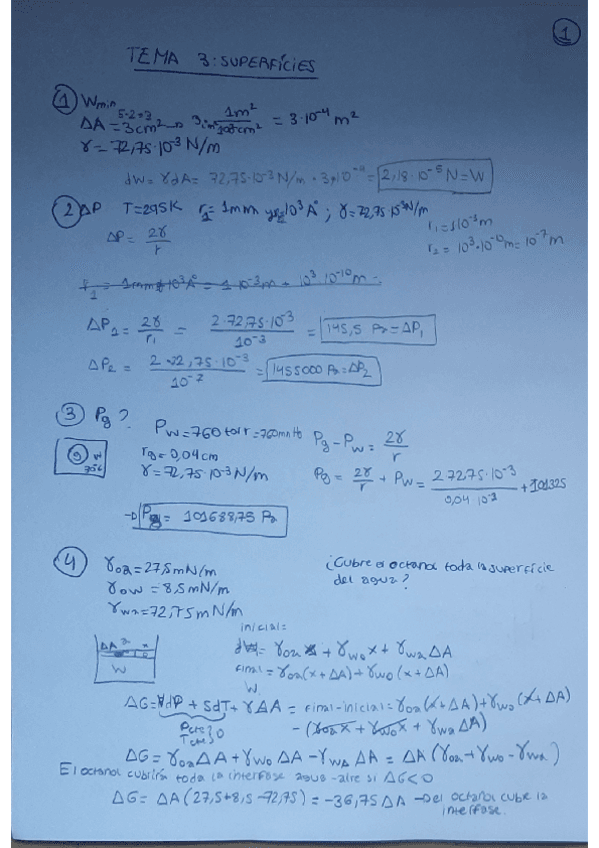 1
TEMA 3: SUPERFÍCIES
① Wmin
5-2=3
ΔA = 3cm² → 3cm² 1m²/10⁴cm² = 3·10⁻⁴ m²
γ = 72,75·10⁻³ N/m
dW = γdA = 72,75·10⁻³ N/m · 3·10⁻⁴ = 2,18·10⁻⁵ N = W
② ΔP T=295K r₁= 1mm y r₂=10³ A° ; γ=72,75·10⁻³ N/m
r₁ = 1·10⁻³m
ΔP = 2γ/r
r₂ = 10³·10⁻¹⁰m = 10⁻⁷m
ΔP₁ = 2γ/r₁ = 2·72,75·10⁻³/10⁻³ = 145,5 Pa = ΔP₁
ΔP₂ = 2·72,75·10⁻³/10⁻⁷ = 1455000 Pa = ΔP₂
③ Pg?
Pw = 760 torr = 760mmHg Pg - Pw = 2γ/r
g W
rg = 0,04cm
γ = 72,75·10⁻³ N/m Pg = 2γ/r + Pw = 2·72,75·10⁻³/0,04·10⁻² + 101325
→ Pg = 101688,75 Pa
④ γoa = 27,5 mN/m ¿Cubre el octanol toda la superfície
del agua?
γow = 8,5 mN/m
γwa = 72,75 mN/m
inicial:
ΔA a x
W
γoa x + γwo x + γwa ΔA
final = γoa(x+ΔA) + γwo(x+ΔA)
ΔG = VdP + SdT + γΔA = final-inicial = γoa(x+ΔA) + γwo(x+ΔA)
Pcte
Tcte } 0
-(γoax + γwox + γwa ΔA)
ΔG = γoa ΔA + γwo ΔA - γwa ΔA = ΔA (γoa + γwo - γwa)
El octanol cubrirá toda la interfase agua-aire si ΔG<0
ΔG = ΔA (27,5+8,5-72,75) = -36,75 ΔA → El octanol cubre la
interfase.